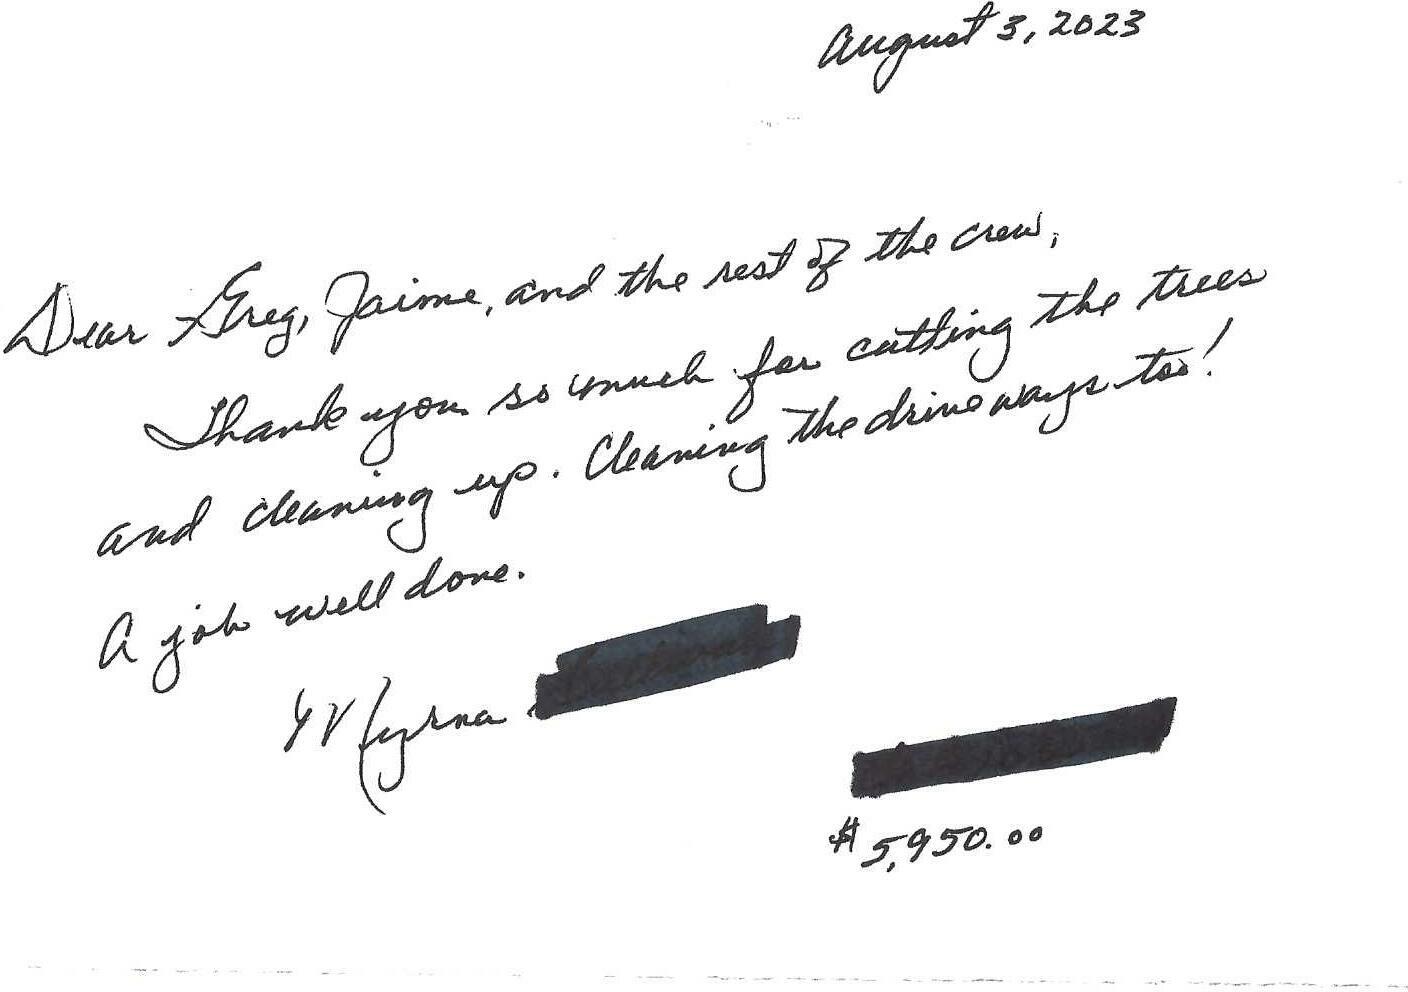 August 3, 2023
Dear Greg, Jaime, and the rest of the crew,
Thank you so much for cutting the trees
and cleaning up. Cleaning the driveways too!
A job well done.
Myrna
$5,950.00